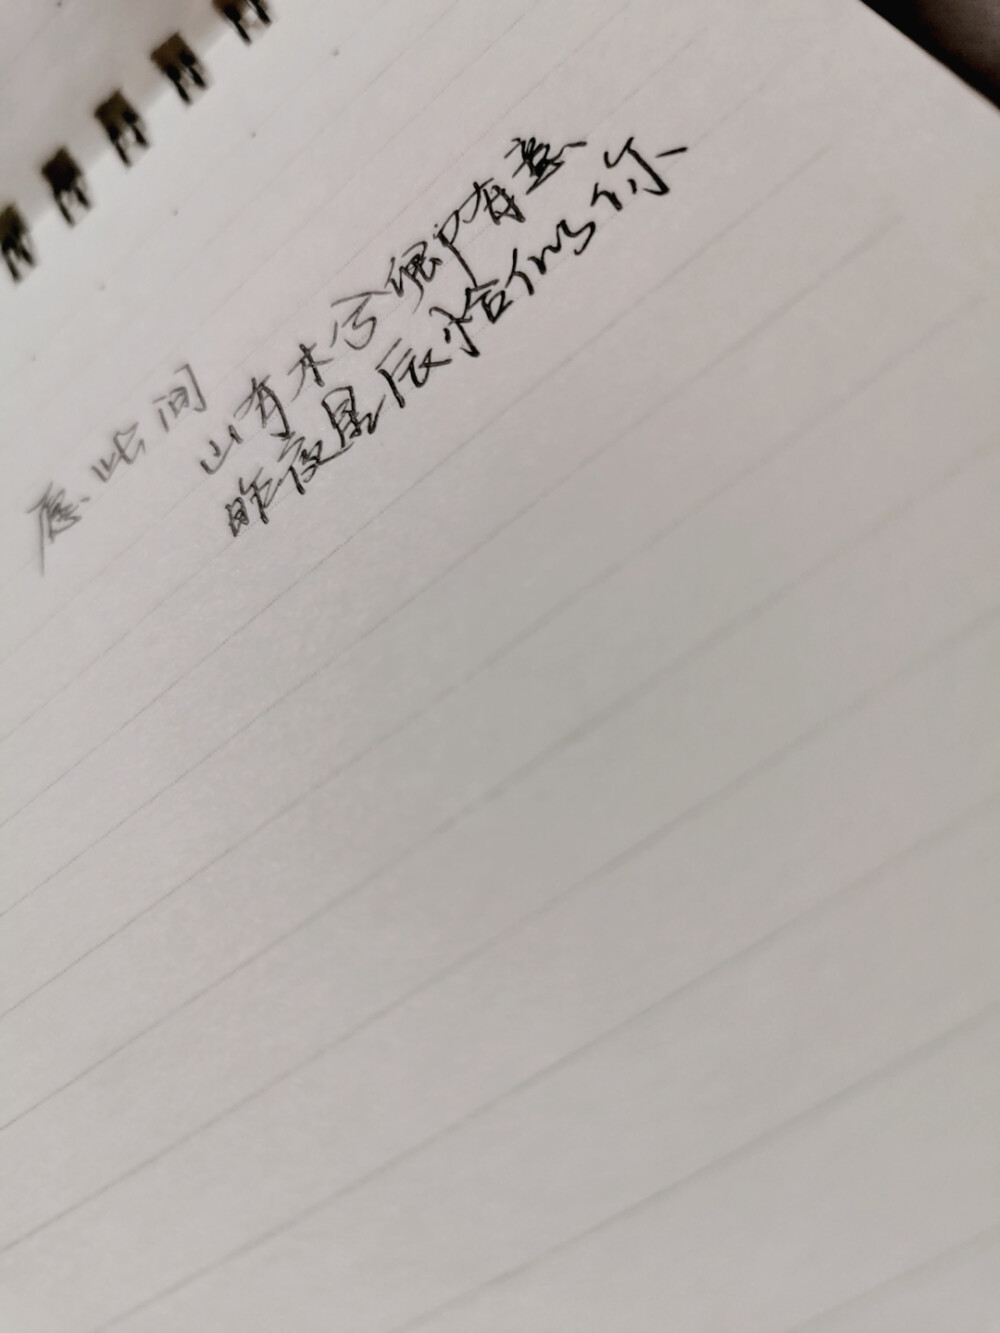 愿此间
山有木兮卿有意
昨夜星辰恰似你